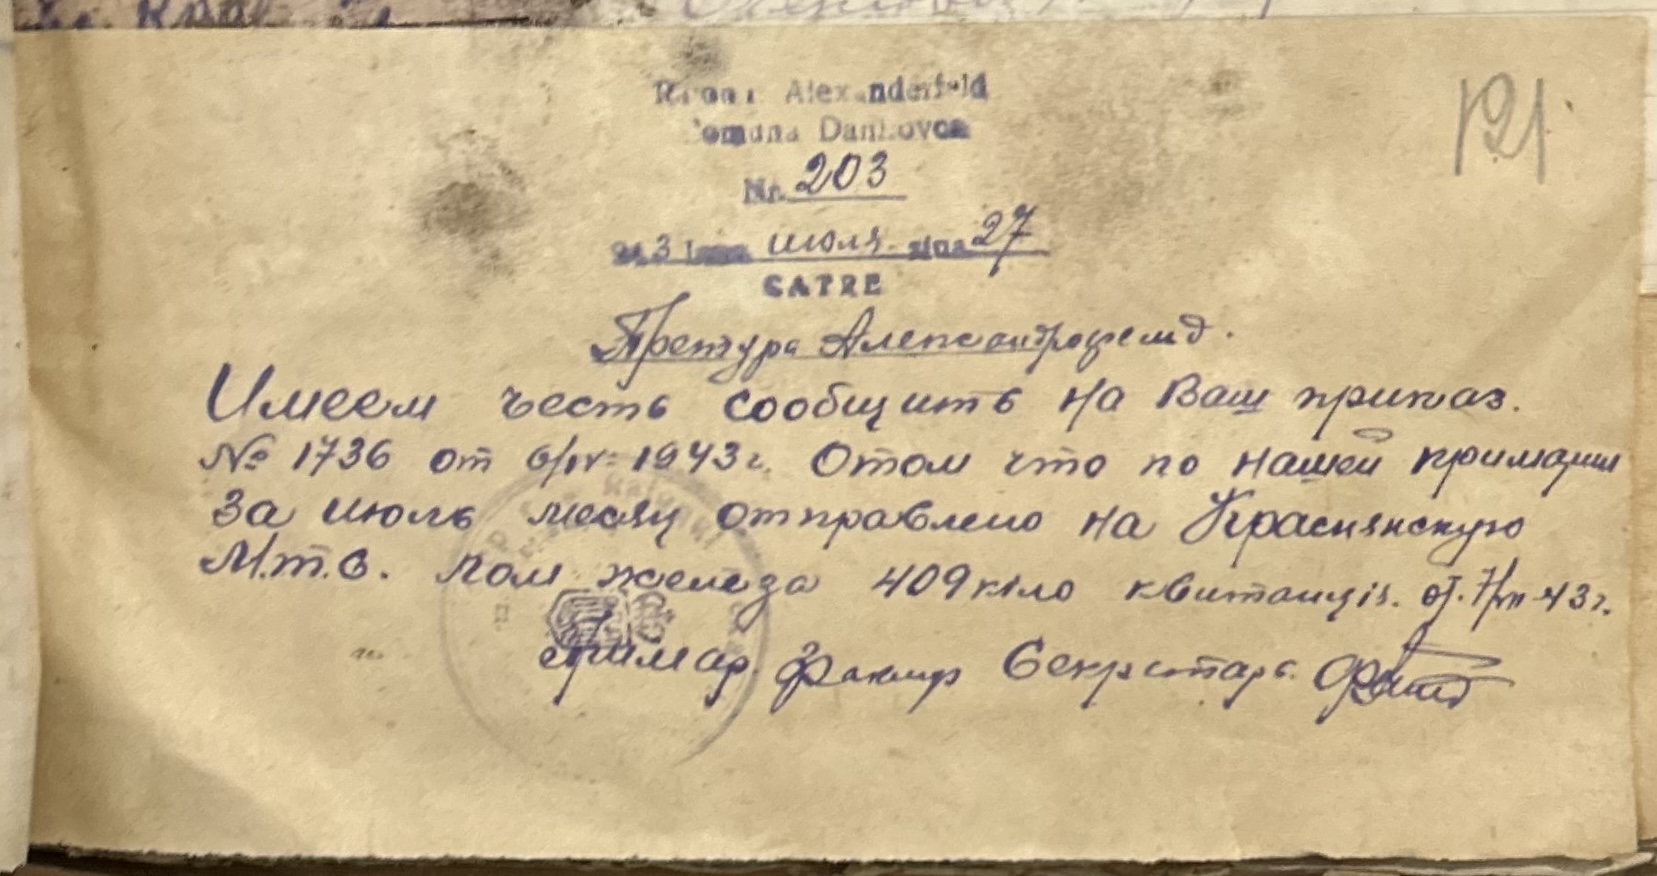 121
Raion Alexanderfeld
Comuna Danilovca
Nr. 203
943 Luna июля ziua 27
CATRE
Претура Александрофельд.
Имеем честь сообщить на Ваш приказ.
№ 1736 от 6/IV-1943г. Отом что по нашей примарии
За июль месяц отправлено на Краснянскую
М.т.с. лом железа 409 кіло квитанція. от. 7/VII-43г.
Примар. Секретарь.